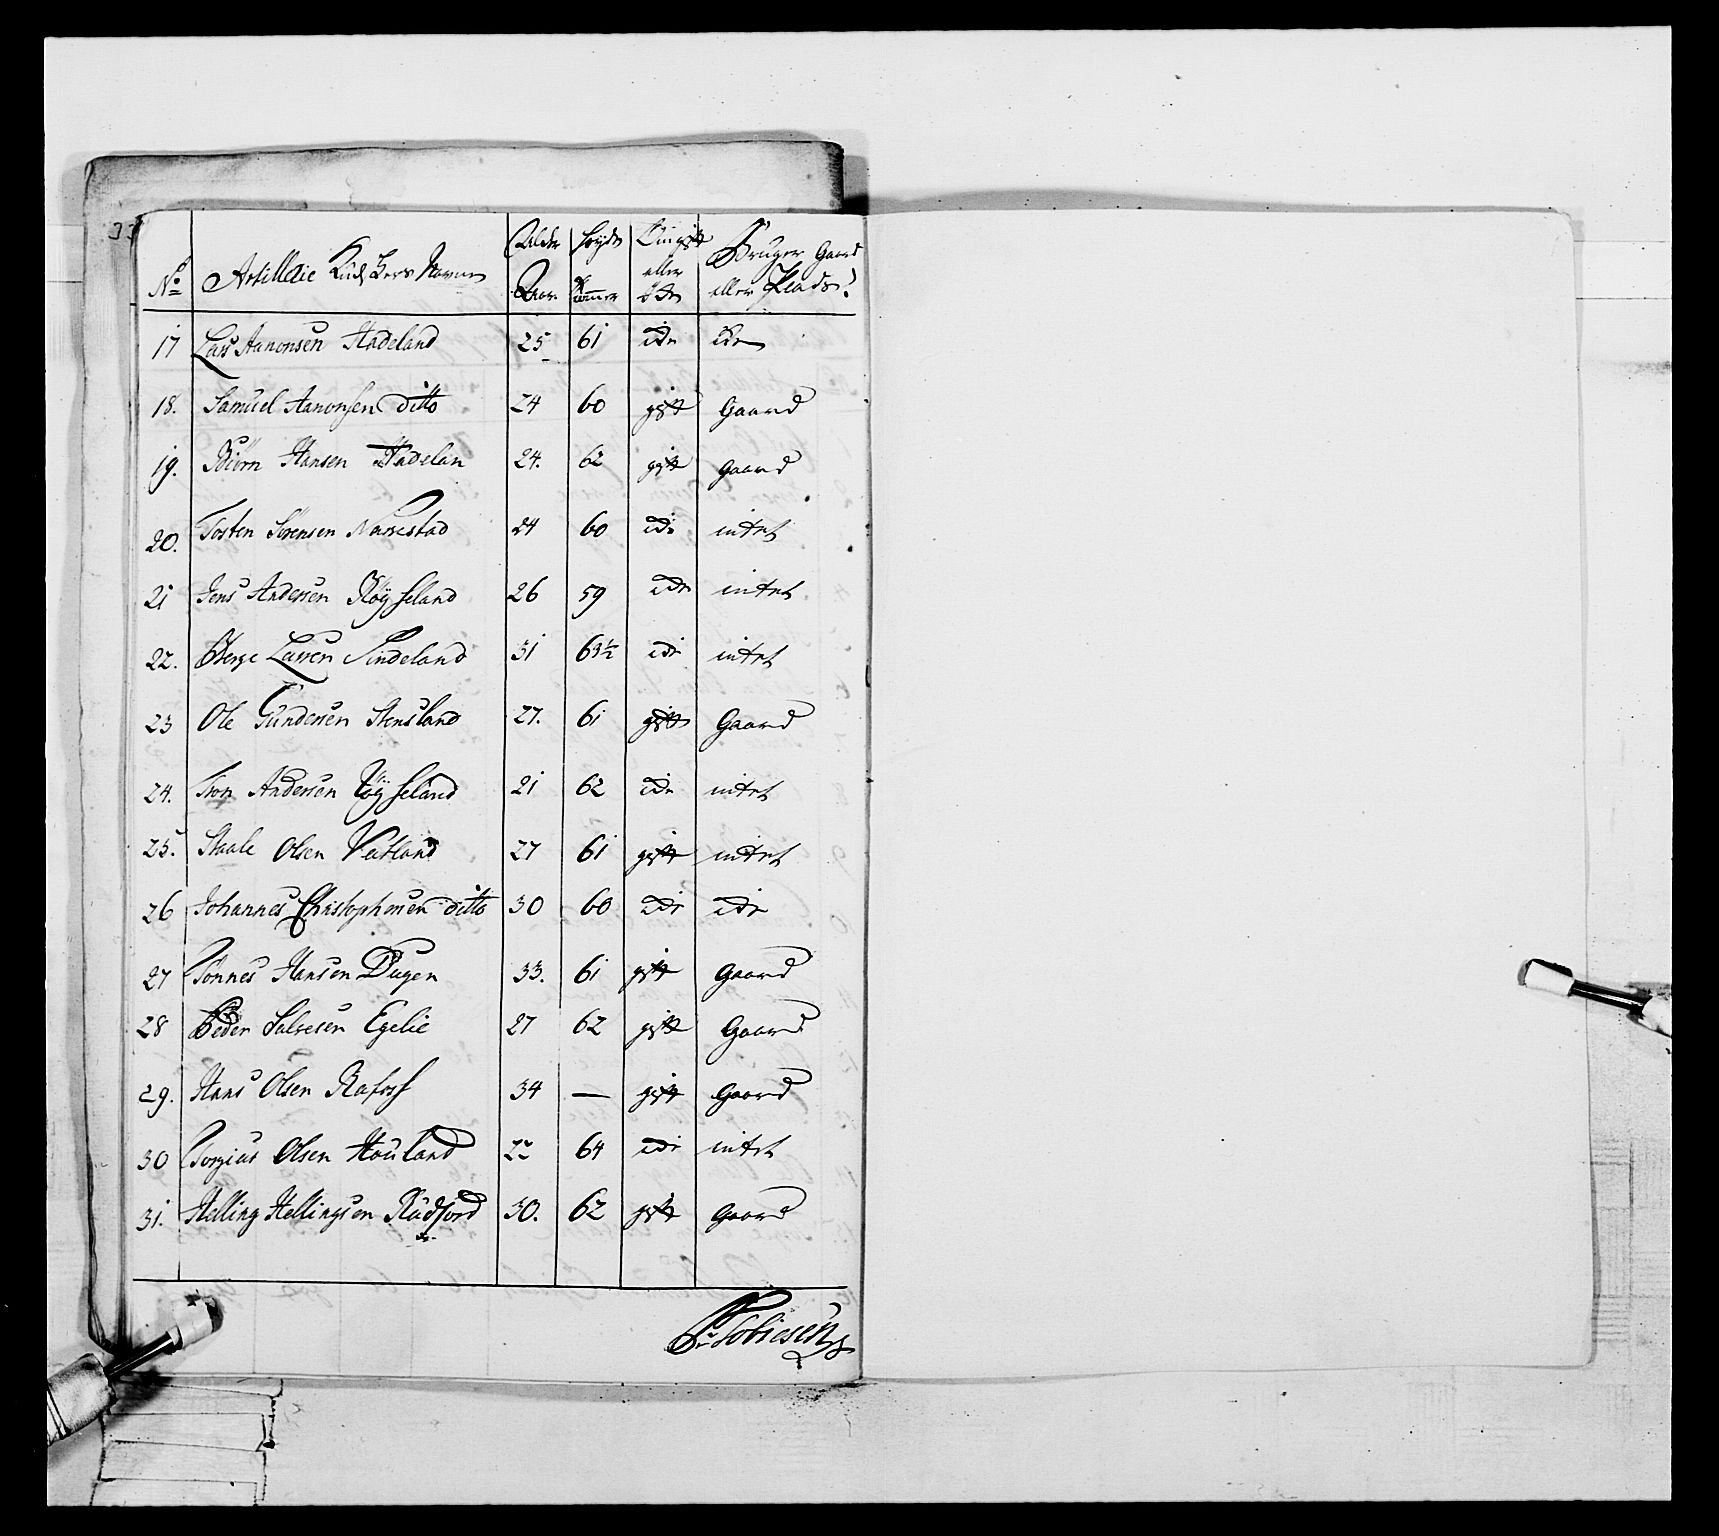 No Artillerie Kudskers Navne Alder Aar Høyde Tommer Om gift eller ei Bruger Gaard eller Plads?
17 Lars Aanonsen Hadeland 25 61 idr idr
18. Samuel Aanonsen ditto 24 60 gift Gaard
19. Biørn Hansen Hadelan 24. 62 gift Gaard
20. Tosten Sørensen Narrestad 24 60 idr intet
21 Jens Andersen Røyseland 26 59 idr intet
22. Børge Larsen Sindeland 31 63½ idr intet
23 Ole Gundersen Stensland 27. 61 gift Gaard
24. Tron Andersen Røyseland 21 62 idr intet
25. Staale Olsen Vatland 27 61 gift intet
26 Johannes Christophersen ditto 30 60 idr idr
27 Tønnes Hansen Dugen 33. 61 gift Gaard
28 Peder Salvesen Egelie 27 62 gift Gaard
29. Hans Olsen Rafoss 34 — gift Gaard
30 Torgius Olsen Houland 22 64 idr intet
31. Helling Hellingsen Rudfiord 30. 62 gift Gaard
Tobiesen